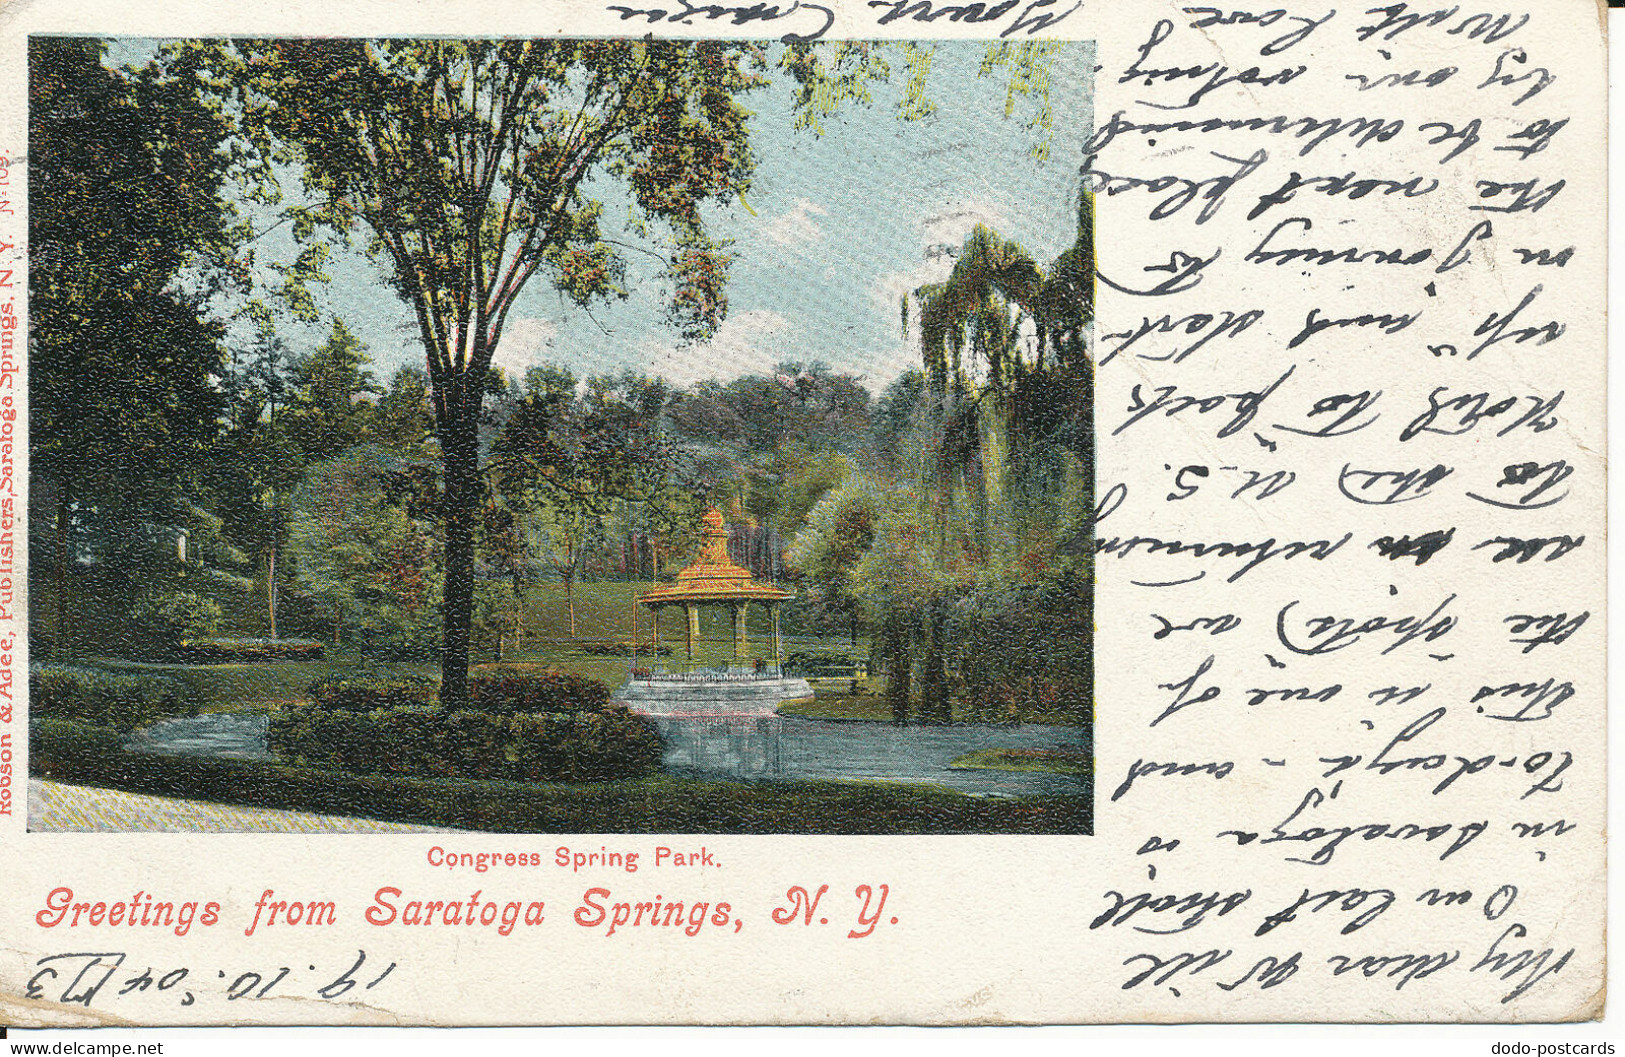 Robson & Adee, Publishers, Saratoga Springs, N. Y. No 109.
Congress Spring Park.
Greetings from Saratoga Springs, N. Y.
19. 10. '04
My dear Will
Our last stroll
in Saratoga is
to-day - and
this is one of
the spots we
see returning
to the U.S.
Hotel to pack
up and start
on journey to
the next place
to be determined
by our
With love
Yours
dodo-postcards